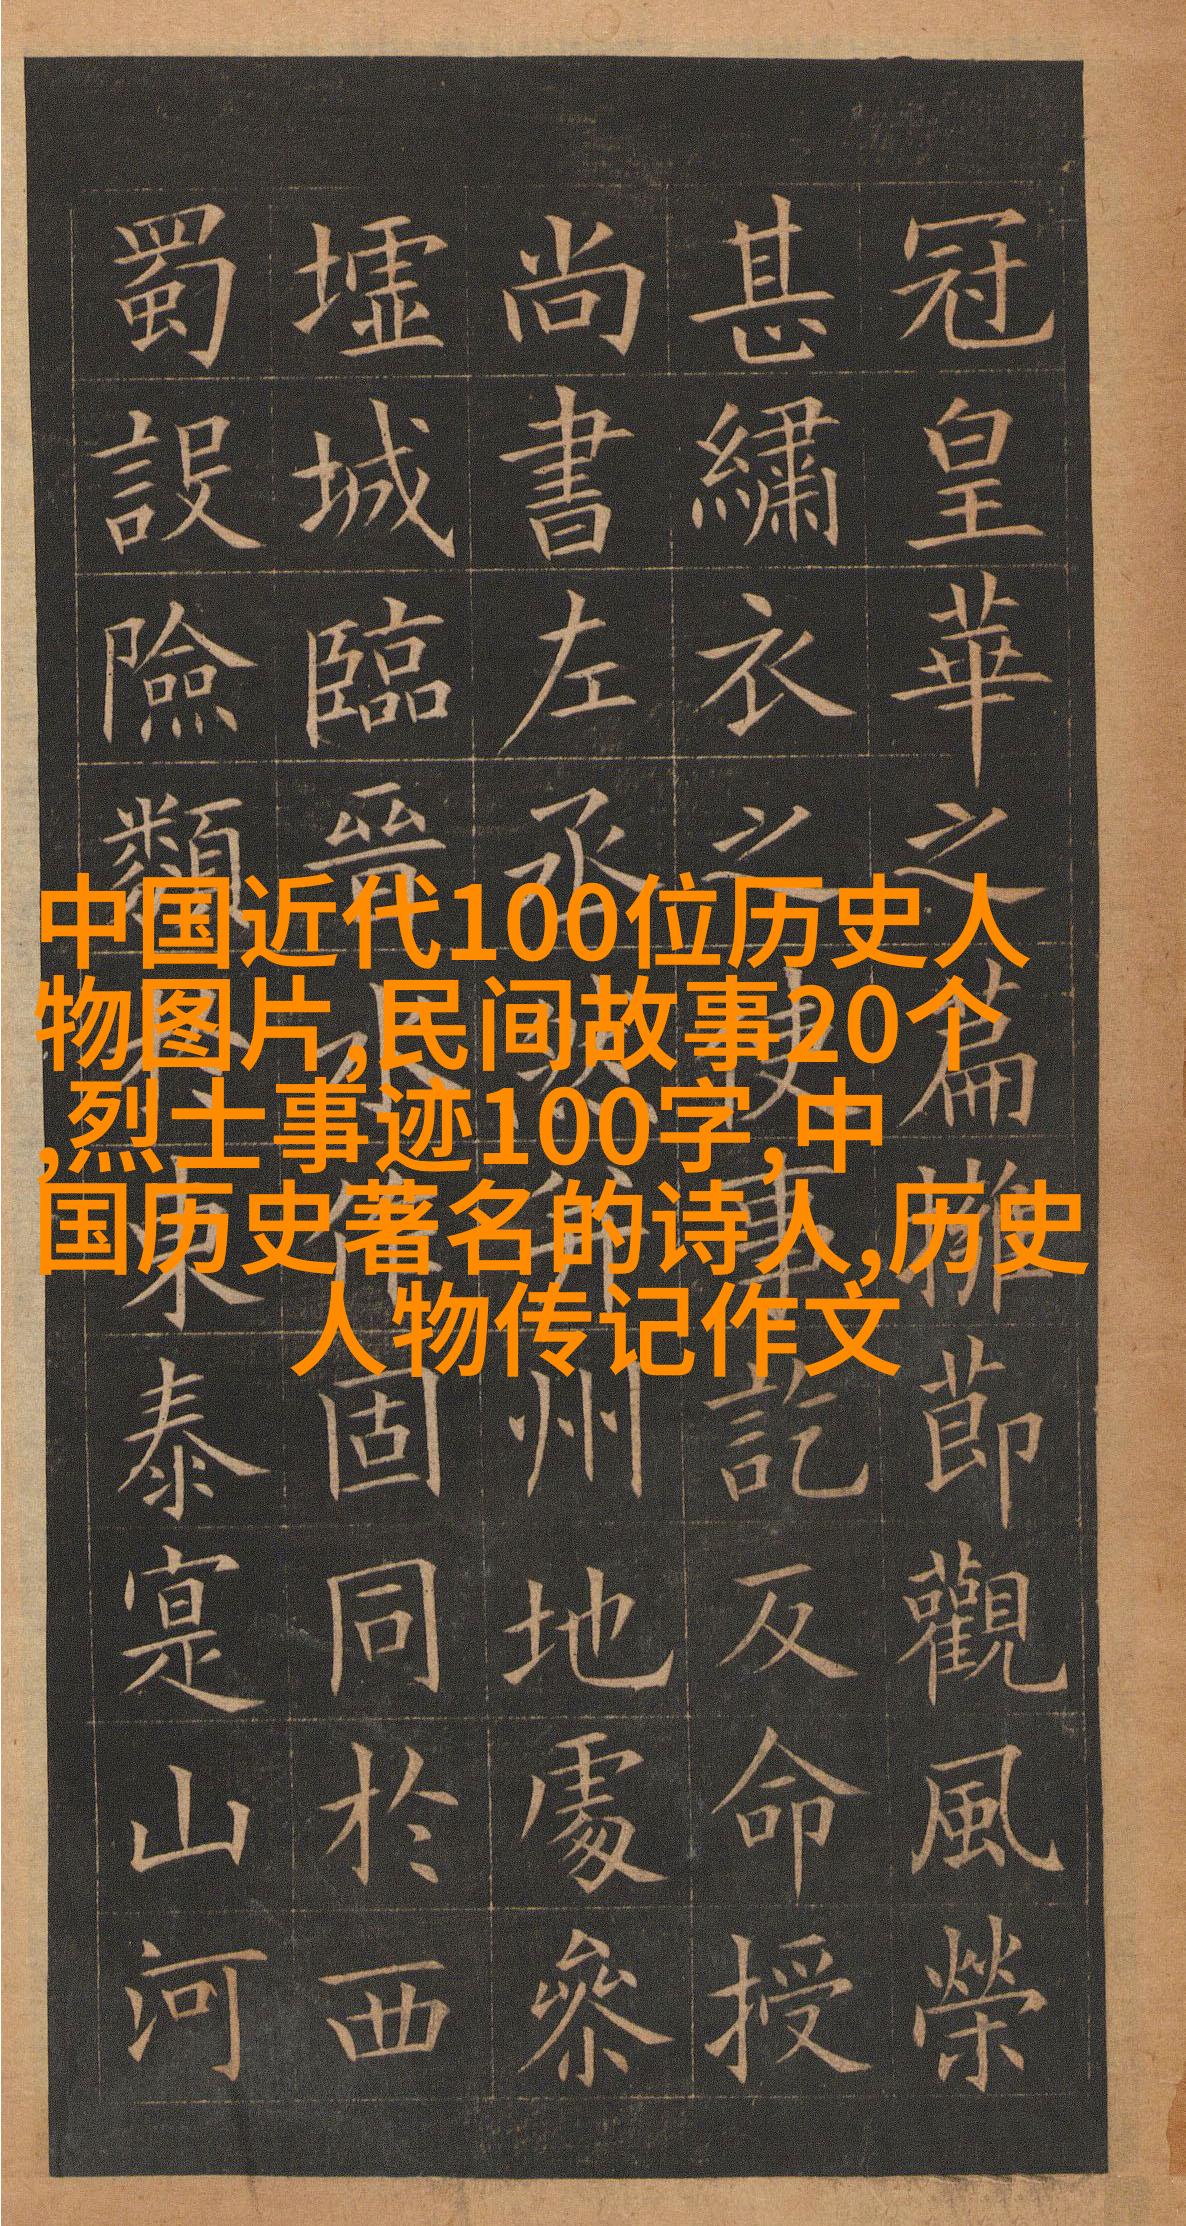 中国近代100位历史人
物图片,民间故事20个
,烈士事迹100字,中
国历史著名的诗人,历史
人物传记作文
冠皇華之篇擁節觀風榮
甚繡衣之使事訖反命授
尚書左丞并州地處參
墟城臨晉水作固同於西
蜀設險類東泰寔山河